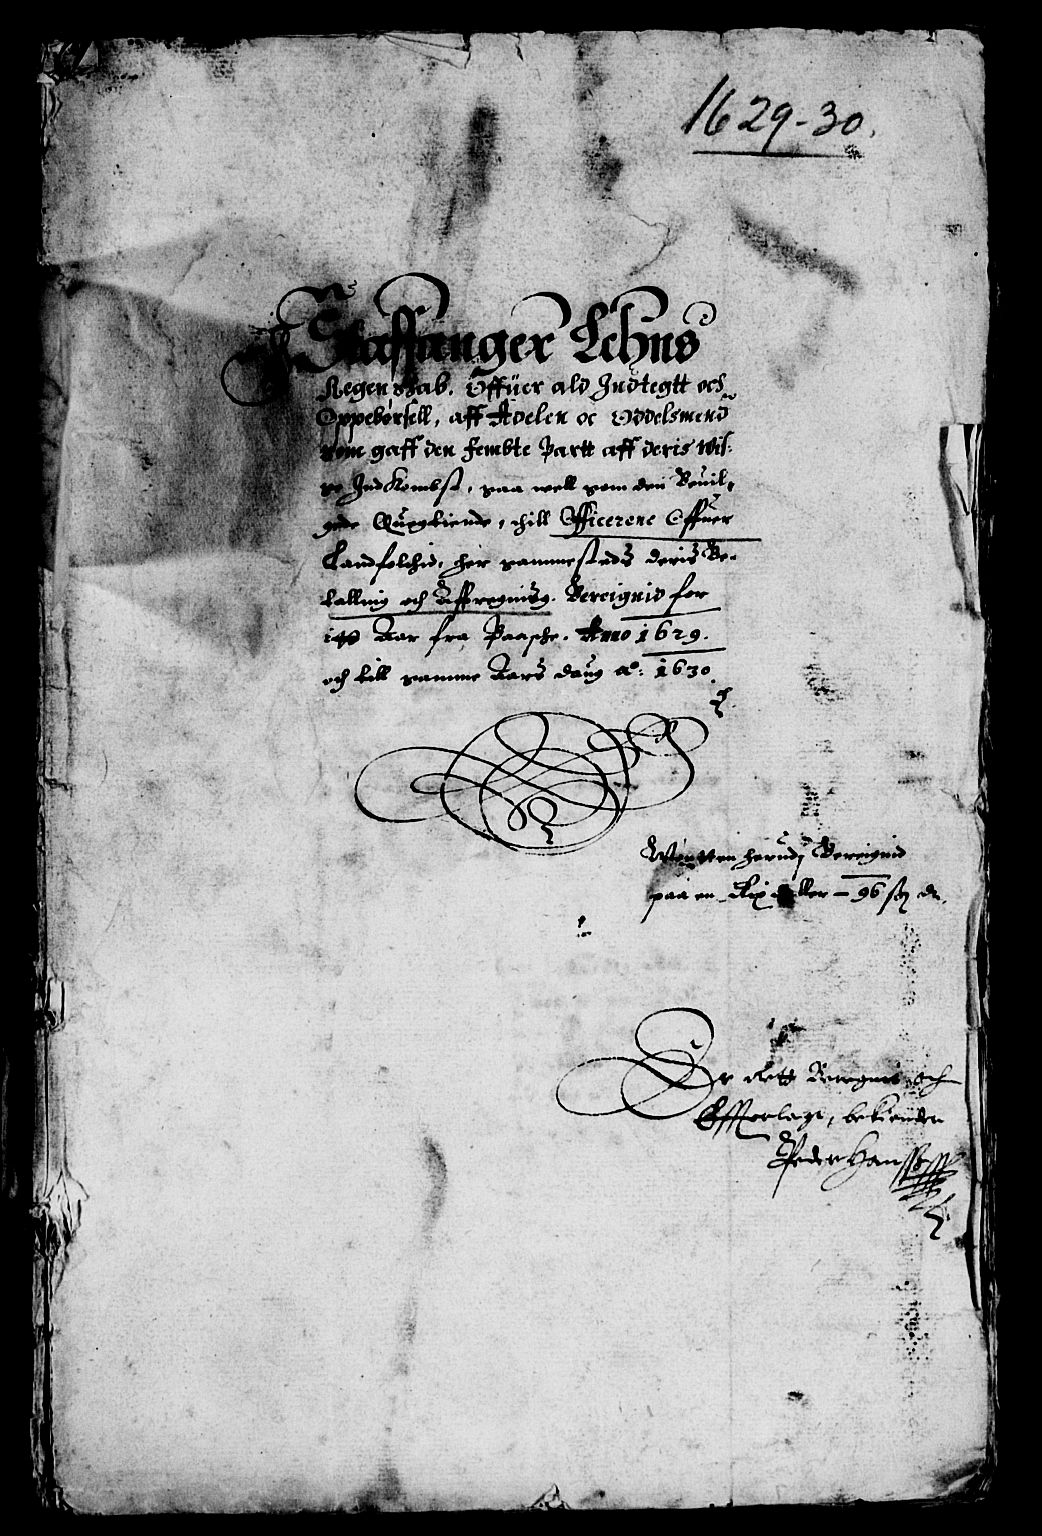 1629-30.
Staffanger Lehns
Regenskab. Offuer ald Indtegtt och
Oppebørsell, aff Adelen oc Oddelsmend
som gaff den Fembte Partt aff deris Wis-
se Ind Kombst, saa well som den Beuil-
gede till Officerene Offuer
Landfolchid, her sammesteds deris Be-
talling och Affregning. Bereignid for
it Aar fra Paasche. Anno 1629.
och till samme Aars daug Ao: 1630.
Mønten herudj Bereignid
paa en Rix daller – 96 sh da.
Er Rett Beregnet och
Offuerlagt, bekiender
Peder Hanssen